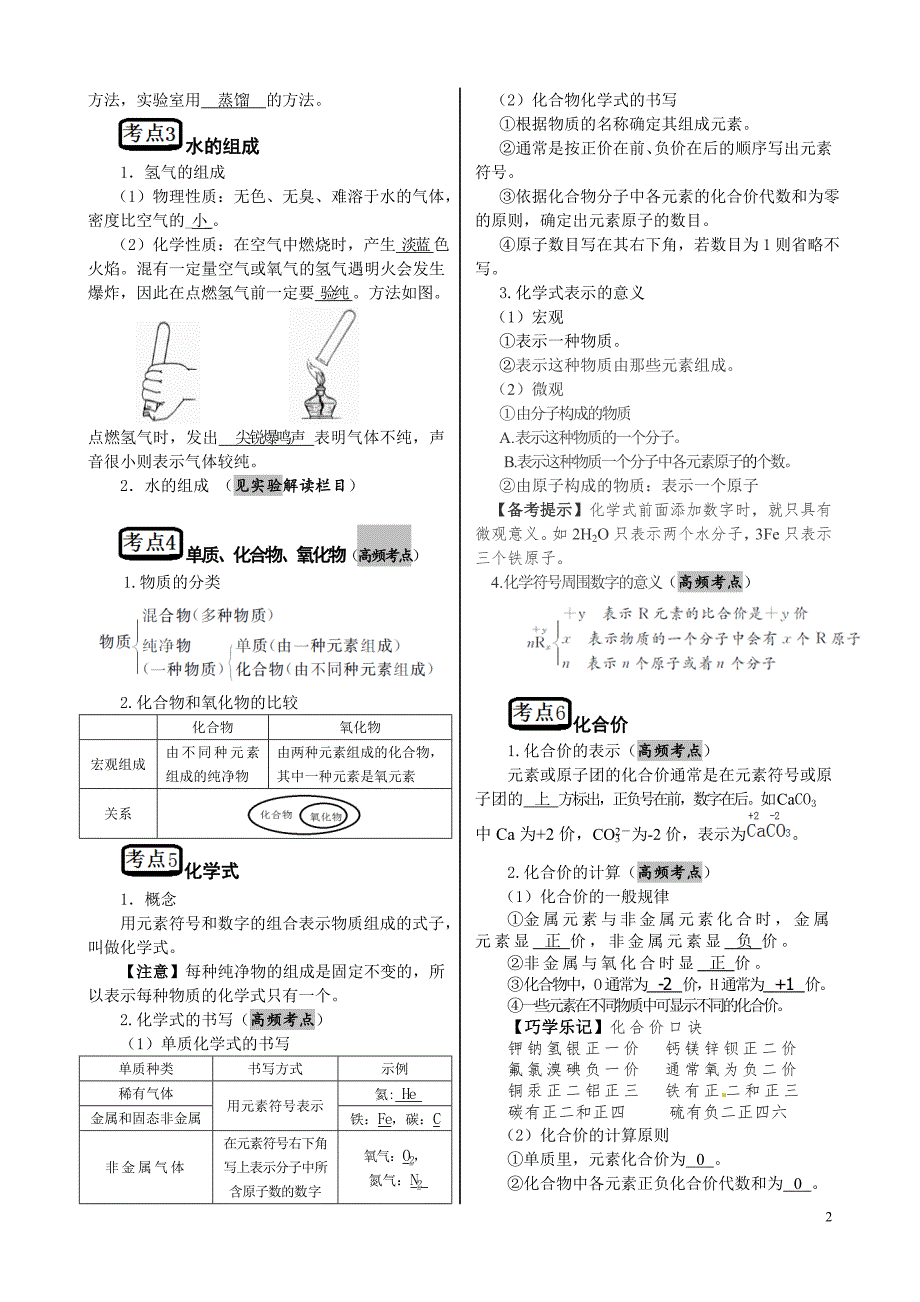 方法，实验室用 蒸馏 的方法。
考点3 水的组成
1．氢气的组成
（1）物理性质：无色、无臭、难溶于水的气体，
密度比空气的 小 。
（2）化学性质：在空气中燃烧时，产生 淡蓝 色
火焰。混有一定量空气或氧气的氢气遇明火会发生
爆炸，因此在点燃氢气前一定要 验纯 。方法如图。
点燃氢气时，发出 尖锐爆鸣声 表明气体不纯，声
音很小则表示气体较纯。
2．水的组成 （见实验解读栏目）
考点4 单质、化合物、氧化物（高频考点）
1.物质的分类
混合物(多种物质)
物质 纯净物 单质(由一种元素组成)
(一种物质) 化合物(由不同种元素组成)
2.化合物和氧化物的比较
化合物 氧化物
宏观组成 由不同种元素 由两种元素组成的化合物，
组成的纯净物 其中一种元素是氧元素
关系 化合物 氧化物
考点5 化学式
1．概念
用元素符号和数字的组合表示物质组成的式子，
叫做化学式。
【注意】每种纯净物的组成是固定不变的，所
以表示每种物质的化学式只有一个。
2.化学式的书写（高频考点）
（1）单质化学式的书写
单质种类 书写方式 示例
稀有气体 用元素符号表示 氦: He
金属和固态非金属 铁：Fe，碳：C
非金属气体 在元素符号右下角 氧气：O₂，
写上表示分子中所 氮气：N₂
含原子数的数字
（2）化合物化学式的书写
①根据物质的名称确定其组成元素。
②通常是按正价在前、负价在后的顺序写出元素
符号。
③依据化合物分子中各元素的化合价代数和为零
的原则，确定出元素原子的数目。
④原子数目写在其右下角，若数目为1则省略不
写。
3.化学式表示的意义
（1）宏观
①表示一种物质。
②表示这种物质由那些元素组成。
（2）微观
①由分子构成的物质
A.表示这种物质的一个分子。
B.表示这种物质一个分子中各元素原子的个数。
②由原子构成的物质：表示一个原子
【备考提示】化学式前面添加数字时，就只具有
微观意义。如2H₂O只表示两个水分子，3Fe只表示
三个铁原子。
4.化学符号周围数字的意义（高频考点）
+y 表示R元素的比合价是+y价
n R +y x x 表示物质的一个分子中会有x个R原子
n 表示n个原子或着n个分子
考点6 化合价
1.化合价的表示（高频考点）
元素或原子团的化合价通常是在元素符号或原
子团的 上 方标出，正负号在前，数字在后。如CaCO₃
+2 -2
中Ca为+2价，CO₃²⁻为-2价，表示为CaCO₃。
2.化合价的计算（高频考点）
（1）化合价的一般规律
①金属元素与非金属元素化合时，金属
元素显 正 价，非金属元素显 负 价。
②非金属与氧化合时显 正 价。
③化合物中，O通常为 -2 价，H通常为 +1 价。
④一些元素在不同物质中可显示不同的化合价。
【巧学乐记】化合价口诀
钾钠氢银正一价 钙镁锌钡正二价
氟氯溴碘负一价 通常氧为负二价
铜汞正二铝正三 铁有正二和正三
碳有正二和正四 硫有负二正四六
（2）化合价的计算原则
①单质里，元素化合价为 0 。
②化合物中各元素正负化合价代数和为 0 。
2